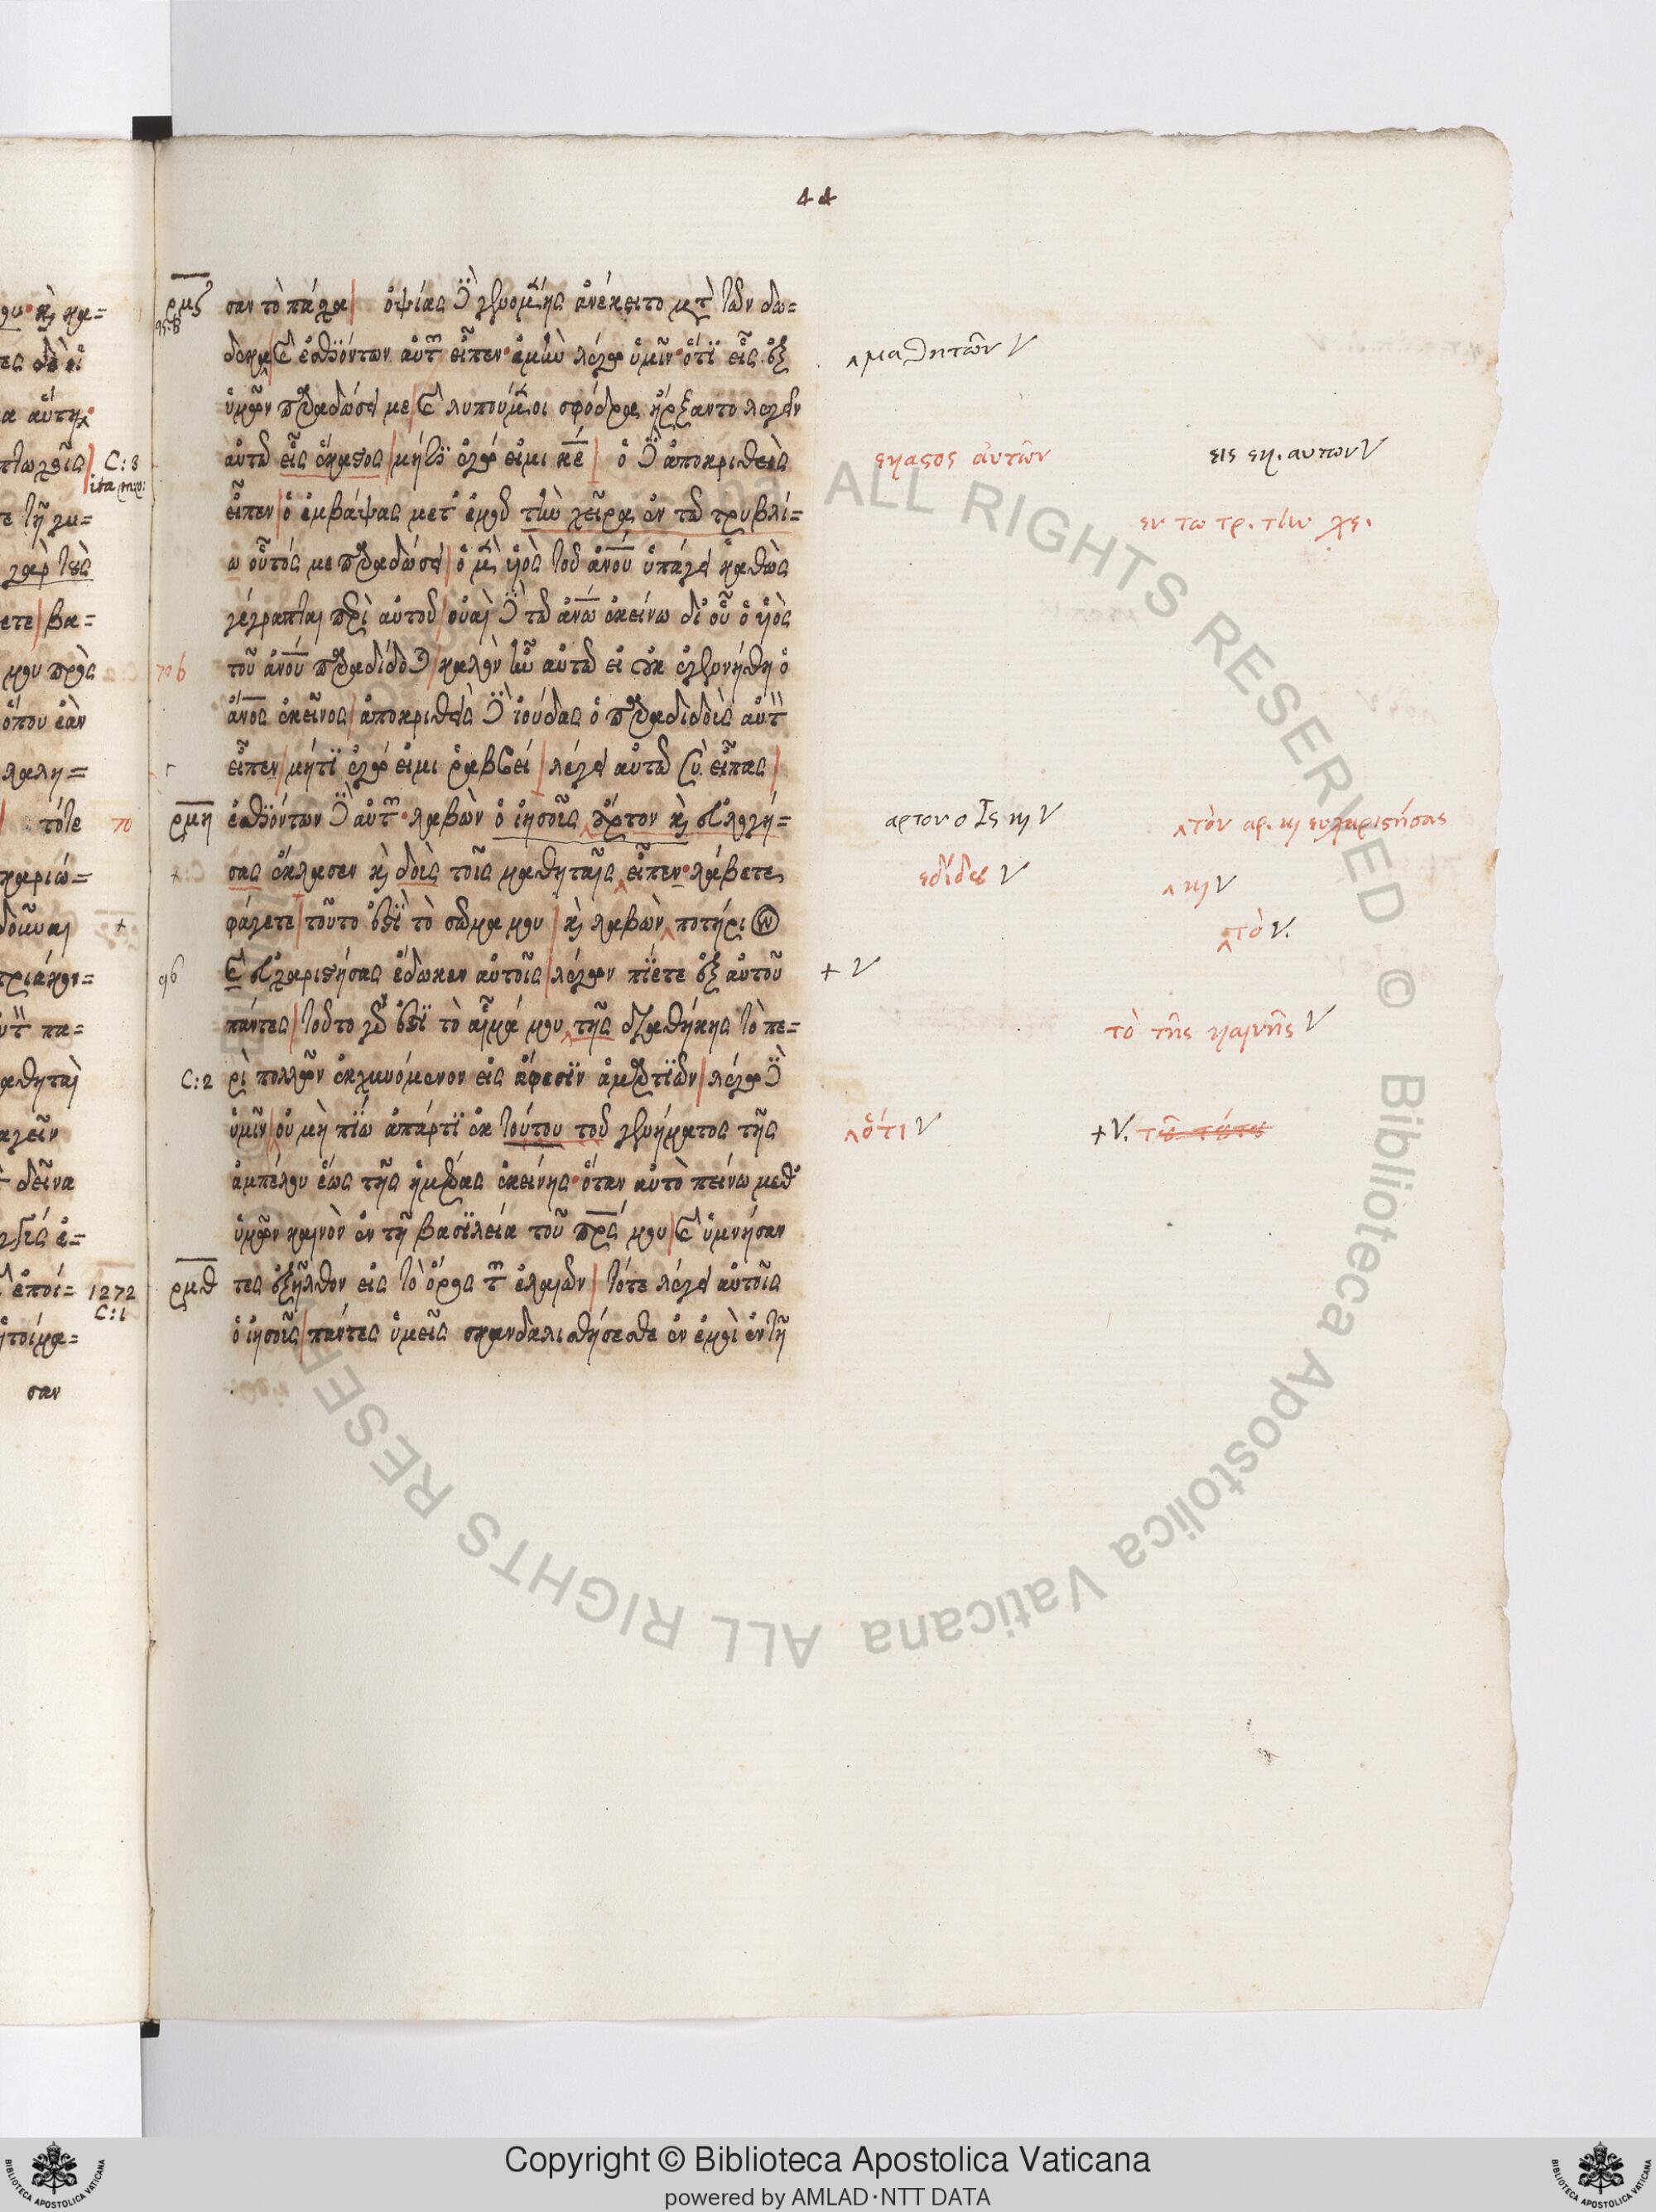 44
σαν τὸ πάσχα| ὀψίας δὲ γενομένης ἀνέκειτο μετὰ τῶν δώ=
δεκα| καὶ ἐσθϊόντων αὐτῶν εἶπεν· ἀμὴν λέγω ὑμῖν· ὅτϊ εἷς ἐξ
^ μαθητῶν V
ὑμῶν παραδώσει με| καὶ λυπούμενοι σφόδρα ἤρξαντο λέγειν
αὐτῶ εἷς ἕκαστος| μήτϊ ἐγώ εἰμι κέ| ὁ δὲ ἀποκριθεὶς
εκαστος αὐτῶν
εις εκ. αυτων V
εἶπεν| ὁ ἐμβάψας μετ' ἐμοῦ τὴν χεῖρα ἐν τῶ τρυβλί=
εν τω τρ. τὴν χε.
ω οὗτός με παραδώσει| ὁ μὲν υἱὸς τοῦ ἀνοῦ ὑπάγει καθὼς
γέγραπται περὶ αὐτοῦ| οὐαὶ δὲ τῶ ἀνω ἐκείνω δι' οὗ ὁ υἱὸς
τοῦ ἀνοῦ παραδίδοται| καλὸν ἦν αὐτῶ εἰ οὐκ ἐγεννήθη ὁ
ἀνος ἐκεῖνος| ἀποκριθεὶς δὲ ἰούδας ὁ παραδιδοὺς αὐτὸν
εἶπεν| μήτϊ ἐγώ εἰμι ῥαββεί| λέγει αὐτῶ σὺ εἶπας|
ρμη ἐσθϊόντων δὲ αὐτῶν· λαβὼν ὁ ἰησοῦς ^ ἄρτον καὶ εὐλογή=
αρτον ο Ις κ V
^ τὸν αρ. κ ευχαριστήσας
σας ἔκλασεν καὶ δοὺς τοῖς μαθηταῖς ^ εἶπεν· λάβετε
εδίδου V
^ κ V
φάγετε| τοῦτο ἐστϊ τὸ σῶμα μου| καὶ λαβὼν ^ ποτήριον
^ τὸ V.
καὶ εὐχαριστήσας ἔδωκεν αὐτοῖς| λέγων πΐετε ἐξ αὐτοῦ
+ V
πάντες| τοῦτο γάρ ἐστϊ τὸ αἷμά μου ^ τῆς διαθήκης τὸ πε=
τὸ τῆς καινῆς V
C:2 ρὶ πολλῶν ἐκχυνόμενον εἰς ἄφεσϊν ἁμαρτϊῶν| λέγω δὲ
ὑμῖν| οὐ μὴ πΐω ἀπάρτϊ ἐκ τούτου τοῦ γενήματος τῆς
^ ὅτι V
+ V. τοῦ τούτου
ἀμπέλου ἕως τῆς ἡμέρας ἐκείνης· ὅταν αὐτὸ πείνω μεθ'
ὑμῶν καινὸν ἐν τῆ βασϊλεία τοῦ πρς μου| καὶ ὑμνήσαν
ρμθ τες ἐξῆλθον εἰς τὸ ὄρος τῶν ἐλαιῶν| τότε λέγει αὐτοῖς
ὁ ἰησοῦς| πάντες ὑμεῖς σκανδαλισθήσεσθε ἐν ἐμοὶ ἐν τῆ
Copyright © Biblioteca Apostolica Vaticana
powered by AMLAD·NTT DATA